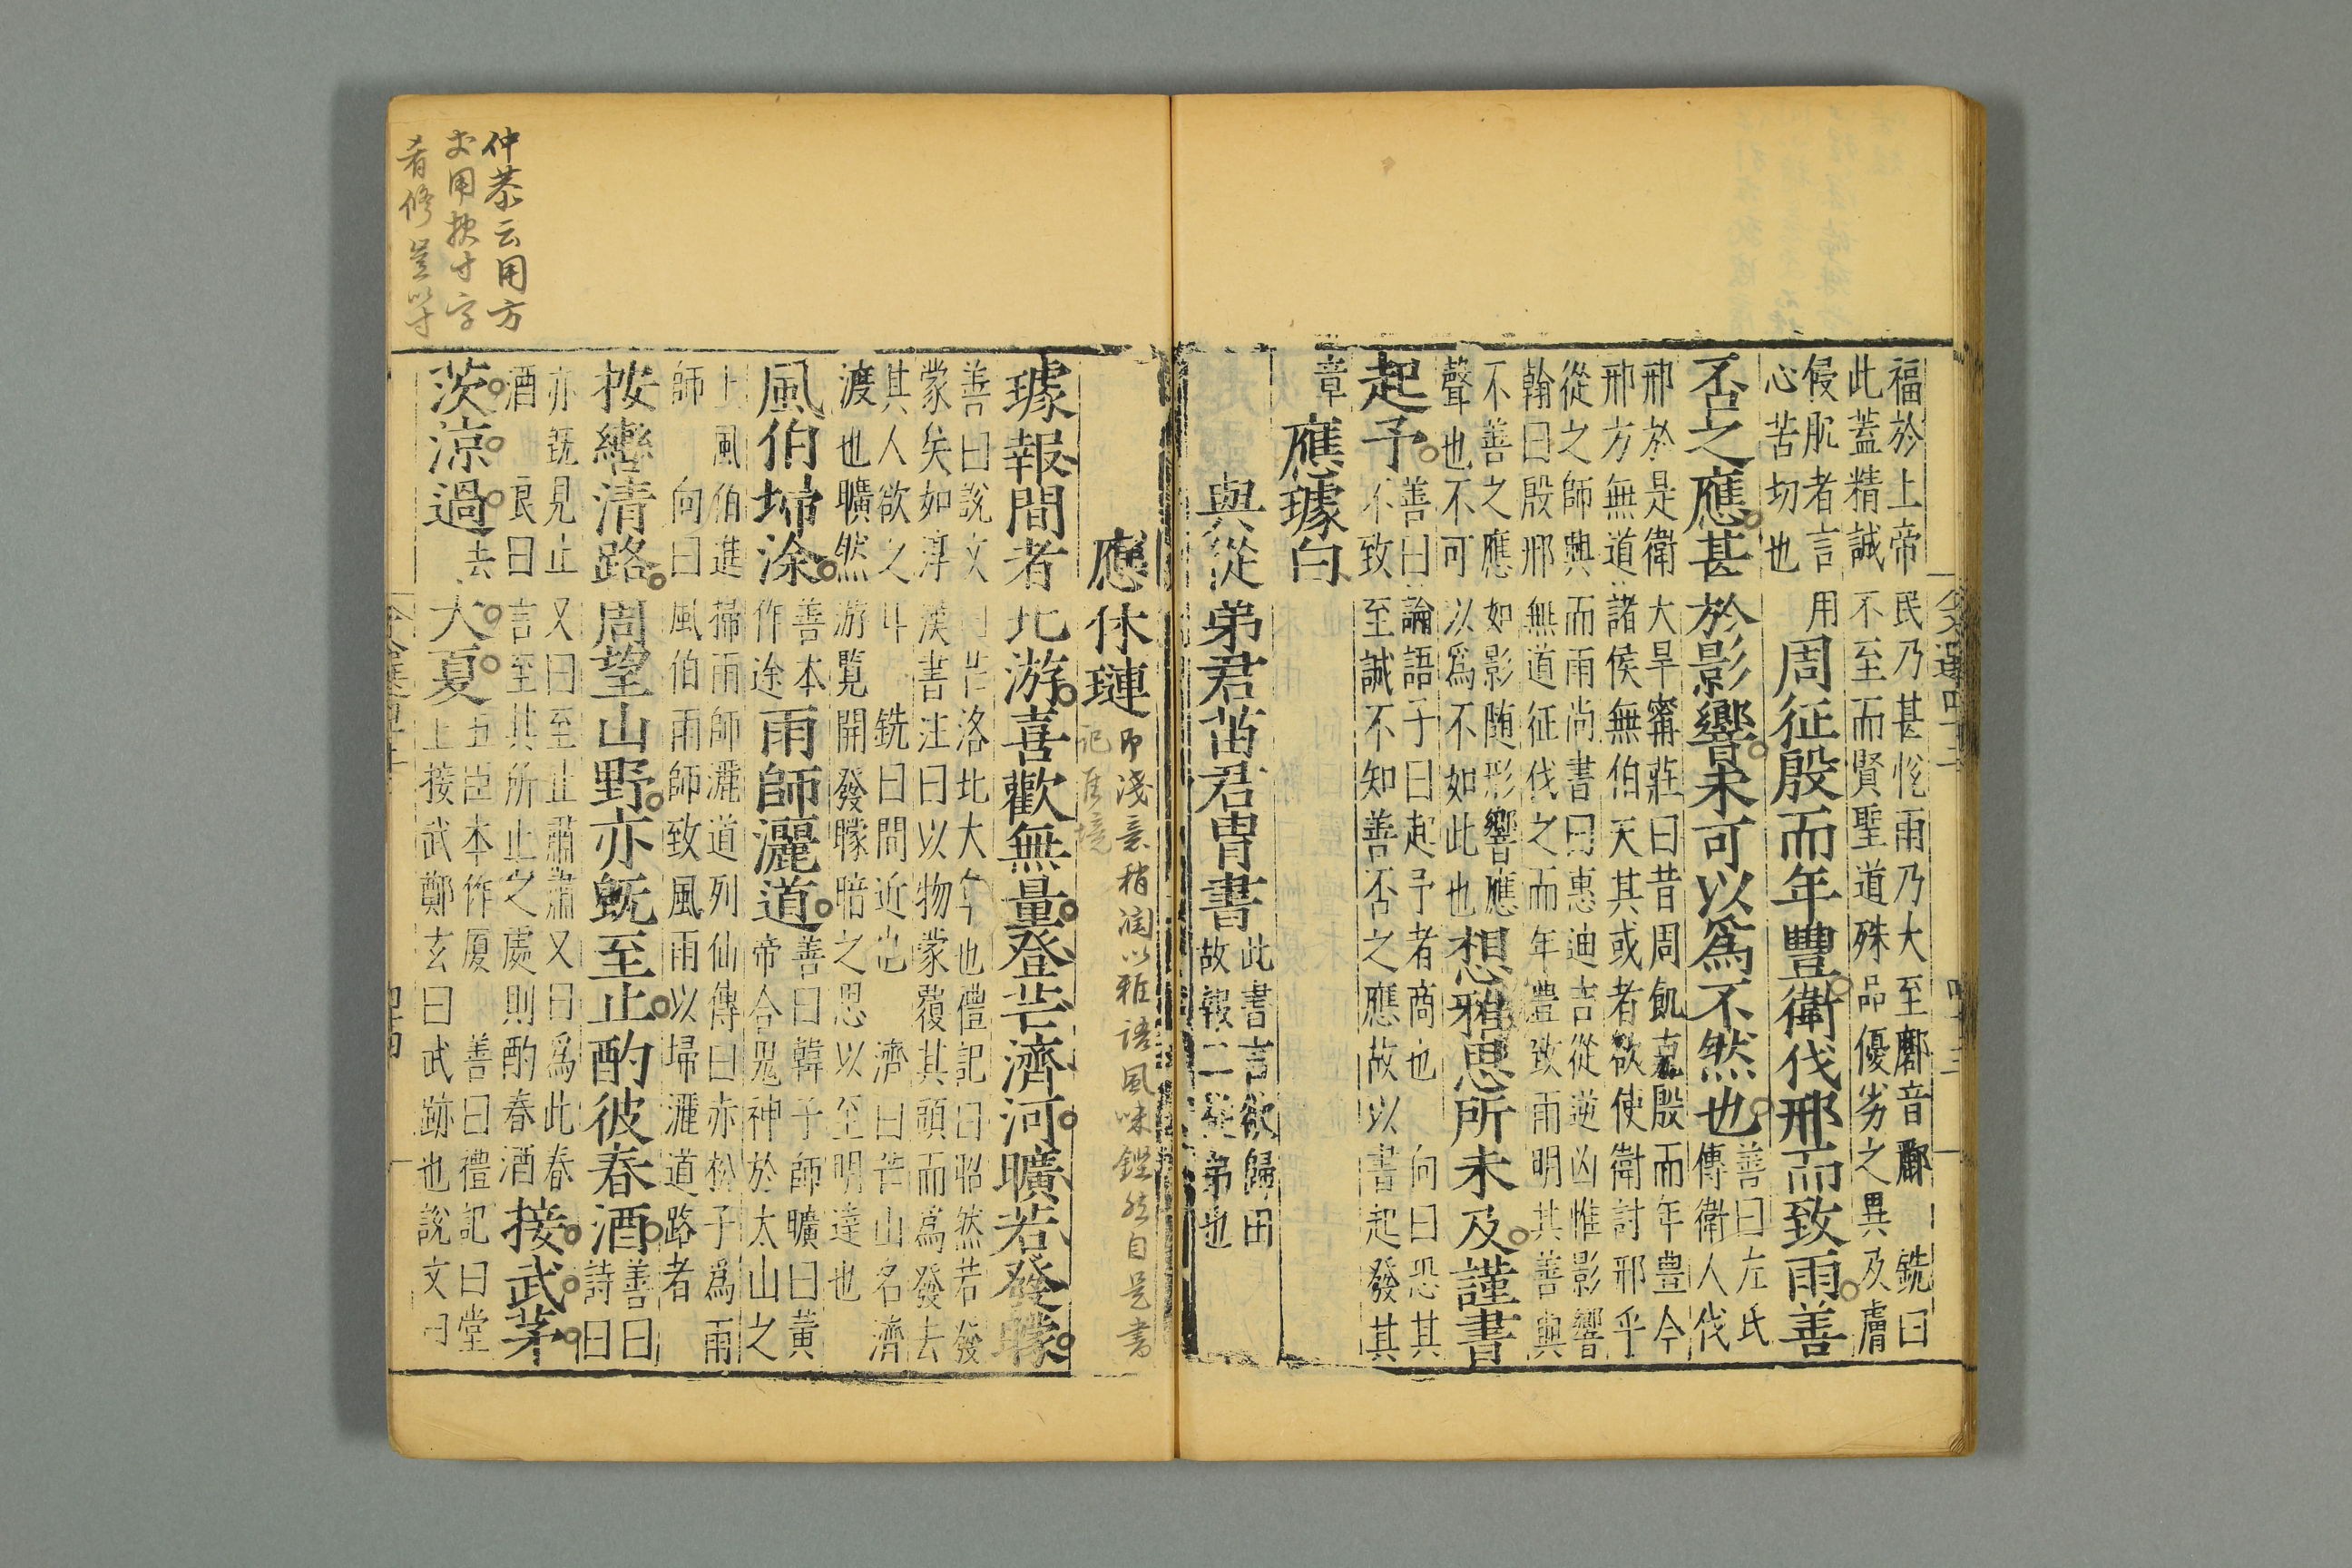 福於上帝民乃甚悅雨乃大至酈音酈 銑曰
此蓋精誠不至而賢聖道殊品優劣之異及膚
侵肌者言用
心苦切也
周征殷而年豐衛伐邢而致雨善
否之應甚於影響未可以爲不然也
善曰左氏
傳衛人伐
邢於是衛大旱甯莊曰昔周飢克殷而年豊今
邢方無道諸侯無伯天其或者欲使衛討邢乎
從之師興而雨尚書曰惠迪吉從逆凶惟影響
翰曰殷邢無道征伐之而年豊致雨明其善與
不善之應如影随形響應
聲也不可以爲不如此也
想雅思所未及謹書
起予
善曰論語子曰起予者商也 向曰恐其
不致至誠不知善否之應故以書起發其
章
應璩白
與從弟君苗君冑書
此書言欲歸田
故報二從弟也
應休璉
即淺意稍潤以雅語風味鏗然自是書
記佳境
璩報間者北游喜歡無量登芒濟河曠若發矇
善曰說文曰芒洛北大阜也禮記曰昭然若發
蒙矣如淳漢書注曰以物蒙覆其頭而爲發去
其人欲之耳 銑曰間近也 濟曰芒山名濟
渡也曠然游覧開發矇暗之思以至明達也
風伯埽涂
善本
作途
雨師灑道
善曰韓子師曠曰黃
帝合鬼神於太山之
上風伯進掃雨師灑道列仙傳曰赤松子爲雨
師 向曰風伯雨師致風雨以埽灑道路者
按轡清路周望山野亦既至止酌彼春酒
善曰
詩曰
亦既見止又曰至止肅肅又曰爲此春
酒 良曰言至其所止之處則酌春酒
接武茅
茨涼過
去
大夏
五臣本作厦 善曰禮記曰堂
上接武鄭玄曰武跡也說文曰
仲恭云用方
寸用扶寸字
肴修豈以寸